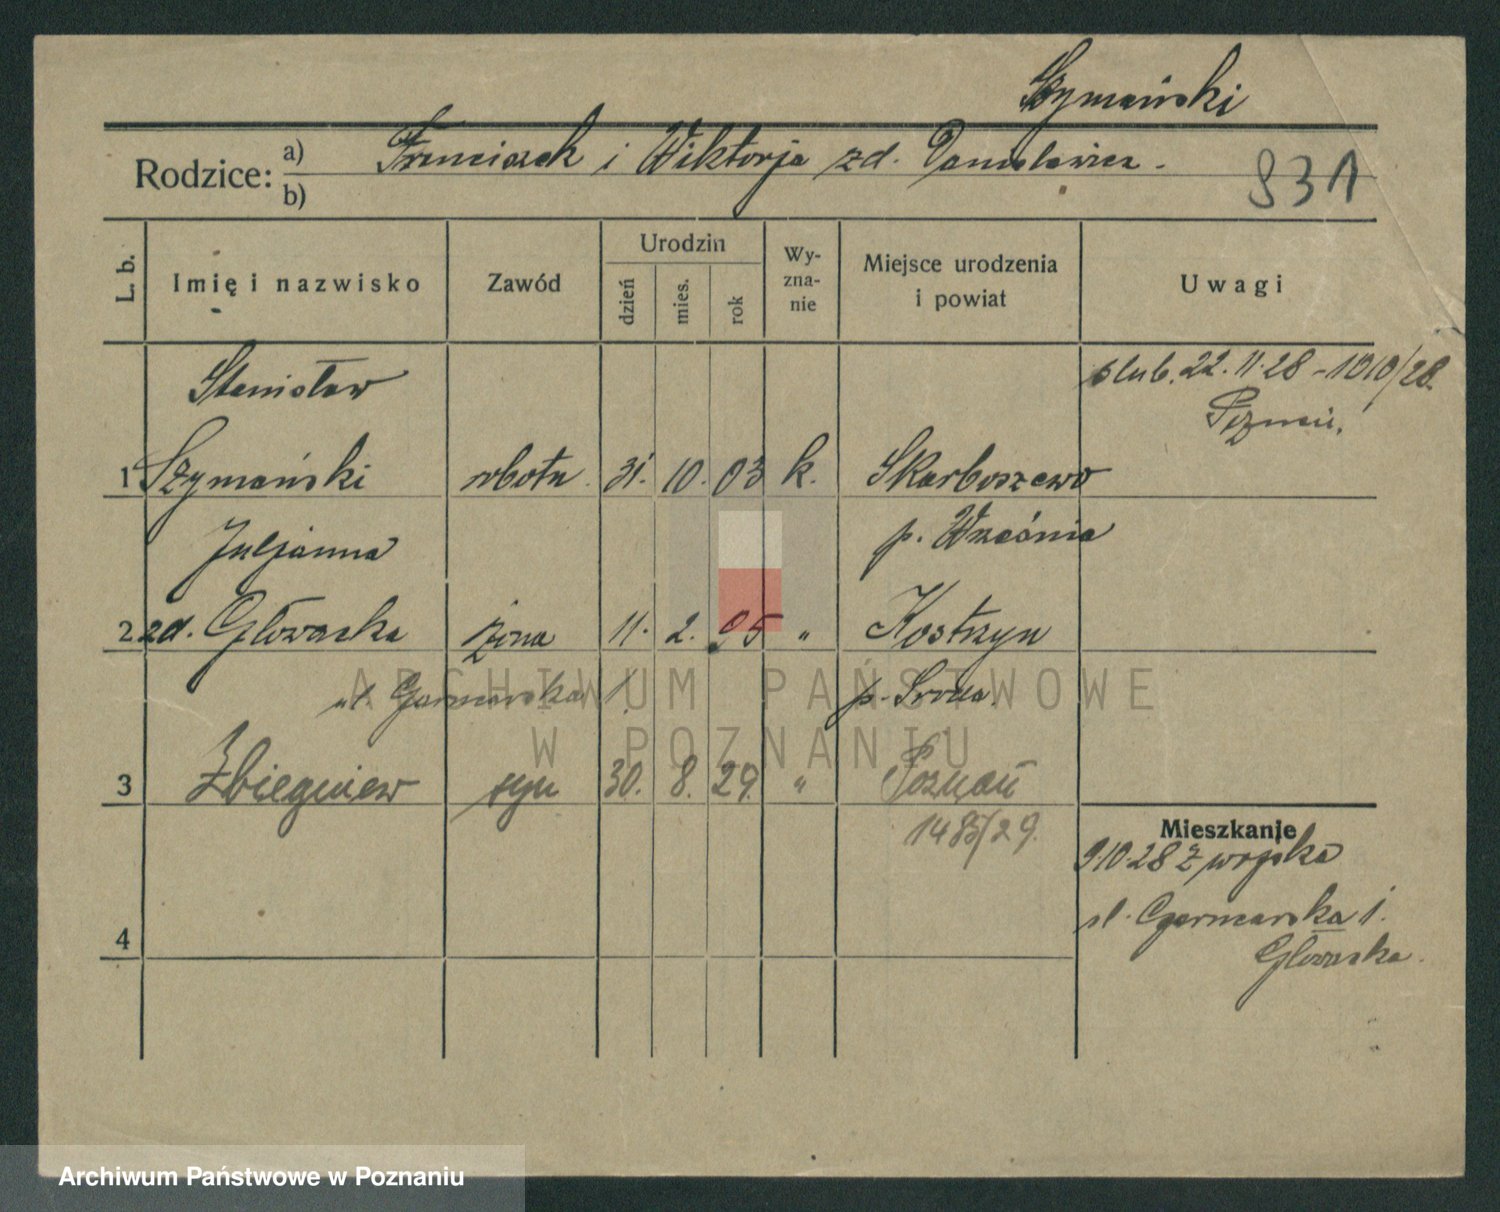 Szymański
Rodzice: a) Franciszek i Wiktorja zd. Danielewicz.
b)
931
L. b.
Imię i nazwisko
Zawód
Urodzin
dzień
mies.
rok
Wy-
zna-
nie
Miejsce urodzenia
i powiat
Uwagi
Stanisław
ślub. 22.11.28 - 1010/28.
Poznań.
1 Szymański robotn. 31. 10. 03 k. Skarboszewo
Juljanna p. Września
2 zd. Głowacka żona 11. 2. 95 " Kostrzyn
ul. Garncarska 1. p. Środa
3 Zbiegniew syn 30. 8. 29. " Poznań
1485/29.
Mieszkanie
9.10.28 z wojska
4
ul. Garncarska 1.
Głowacka.
ARCHIWUM PAŃSTWOWE
W POZNANIU
Archiwum Państwowe w Poznaniu